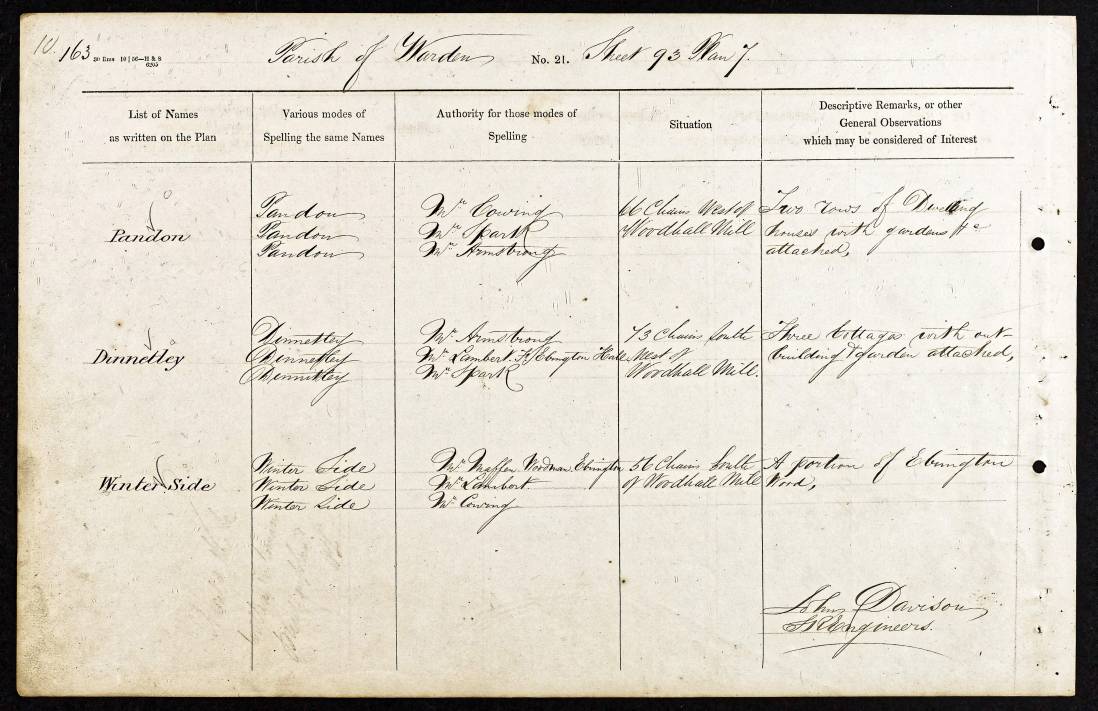 10. 163 30 Rms 10 | 56—H & S
6205
Parish of Warden No. 21. Sheet 93 Plan 7.
List of Names
as written on the Plan
Various modes of
Spelling the same Names
Authority for those modes of
Spelling
Situation
Descriptive Remarks, or other
General Observations
which may be considered of Interest
Pandon
Pandon
Pandon
Pandon
Mr. Cowing
Mr. Spark
Mr. Armstrong
66 Chains West of
Woodhall Mill
Two rows of Dwelling
houses with gardens &c
attached,
Dinnetley
Dinnetley
Dinnetley
Dinnetley
Mr. Armstrong
Mr. Lambert Elrington Hall
Mr. Spark
73 Chains South
West of
Woodhall Mill.
Three Cottages with out-
building & garden attached,
Winter Side
Winter Side
Winter Side
Winter Side
Mr. Woodman Elrington
Mr. Lambert
Mr. Cowing
56 Chains South
of Woodhall Mill
A portion of Elrington
Wood,
John Davison
Engineers.